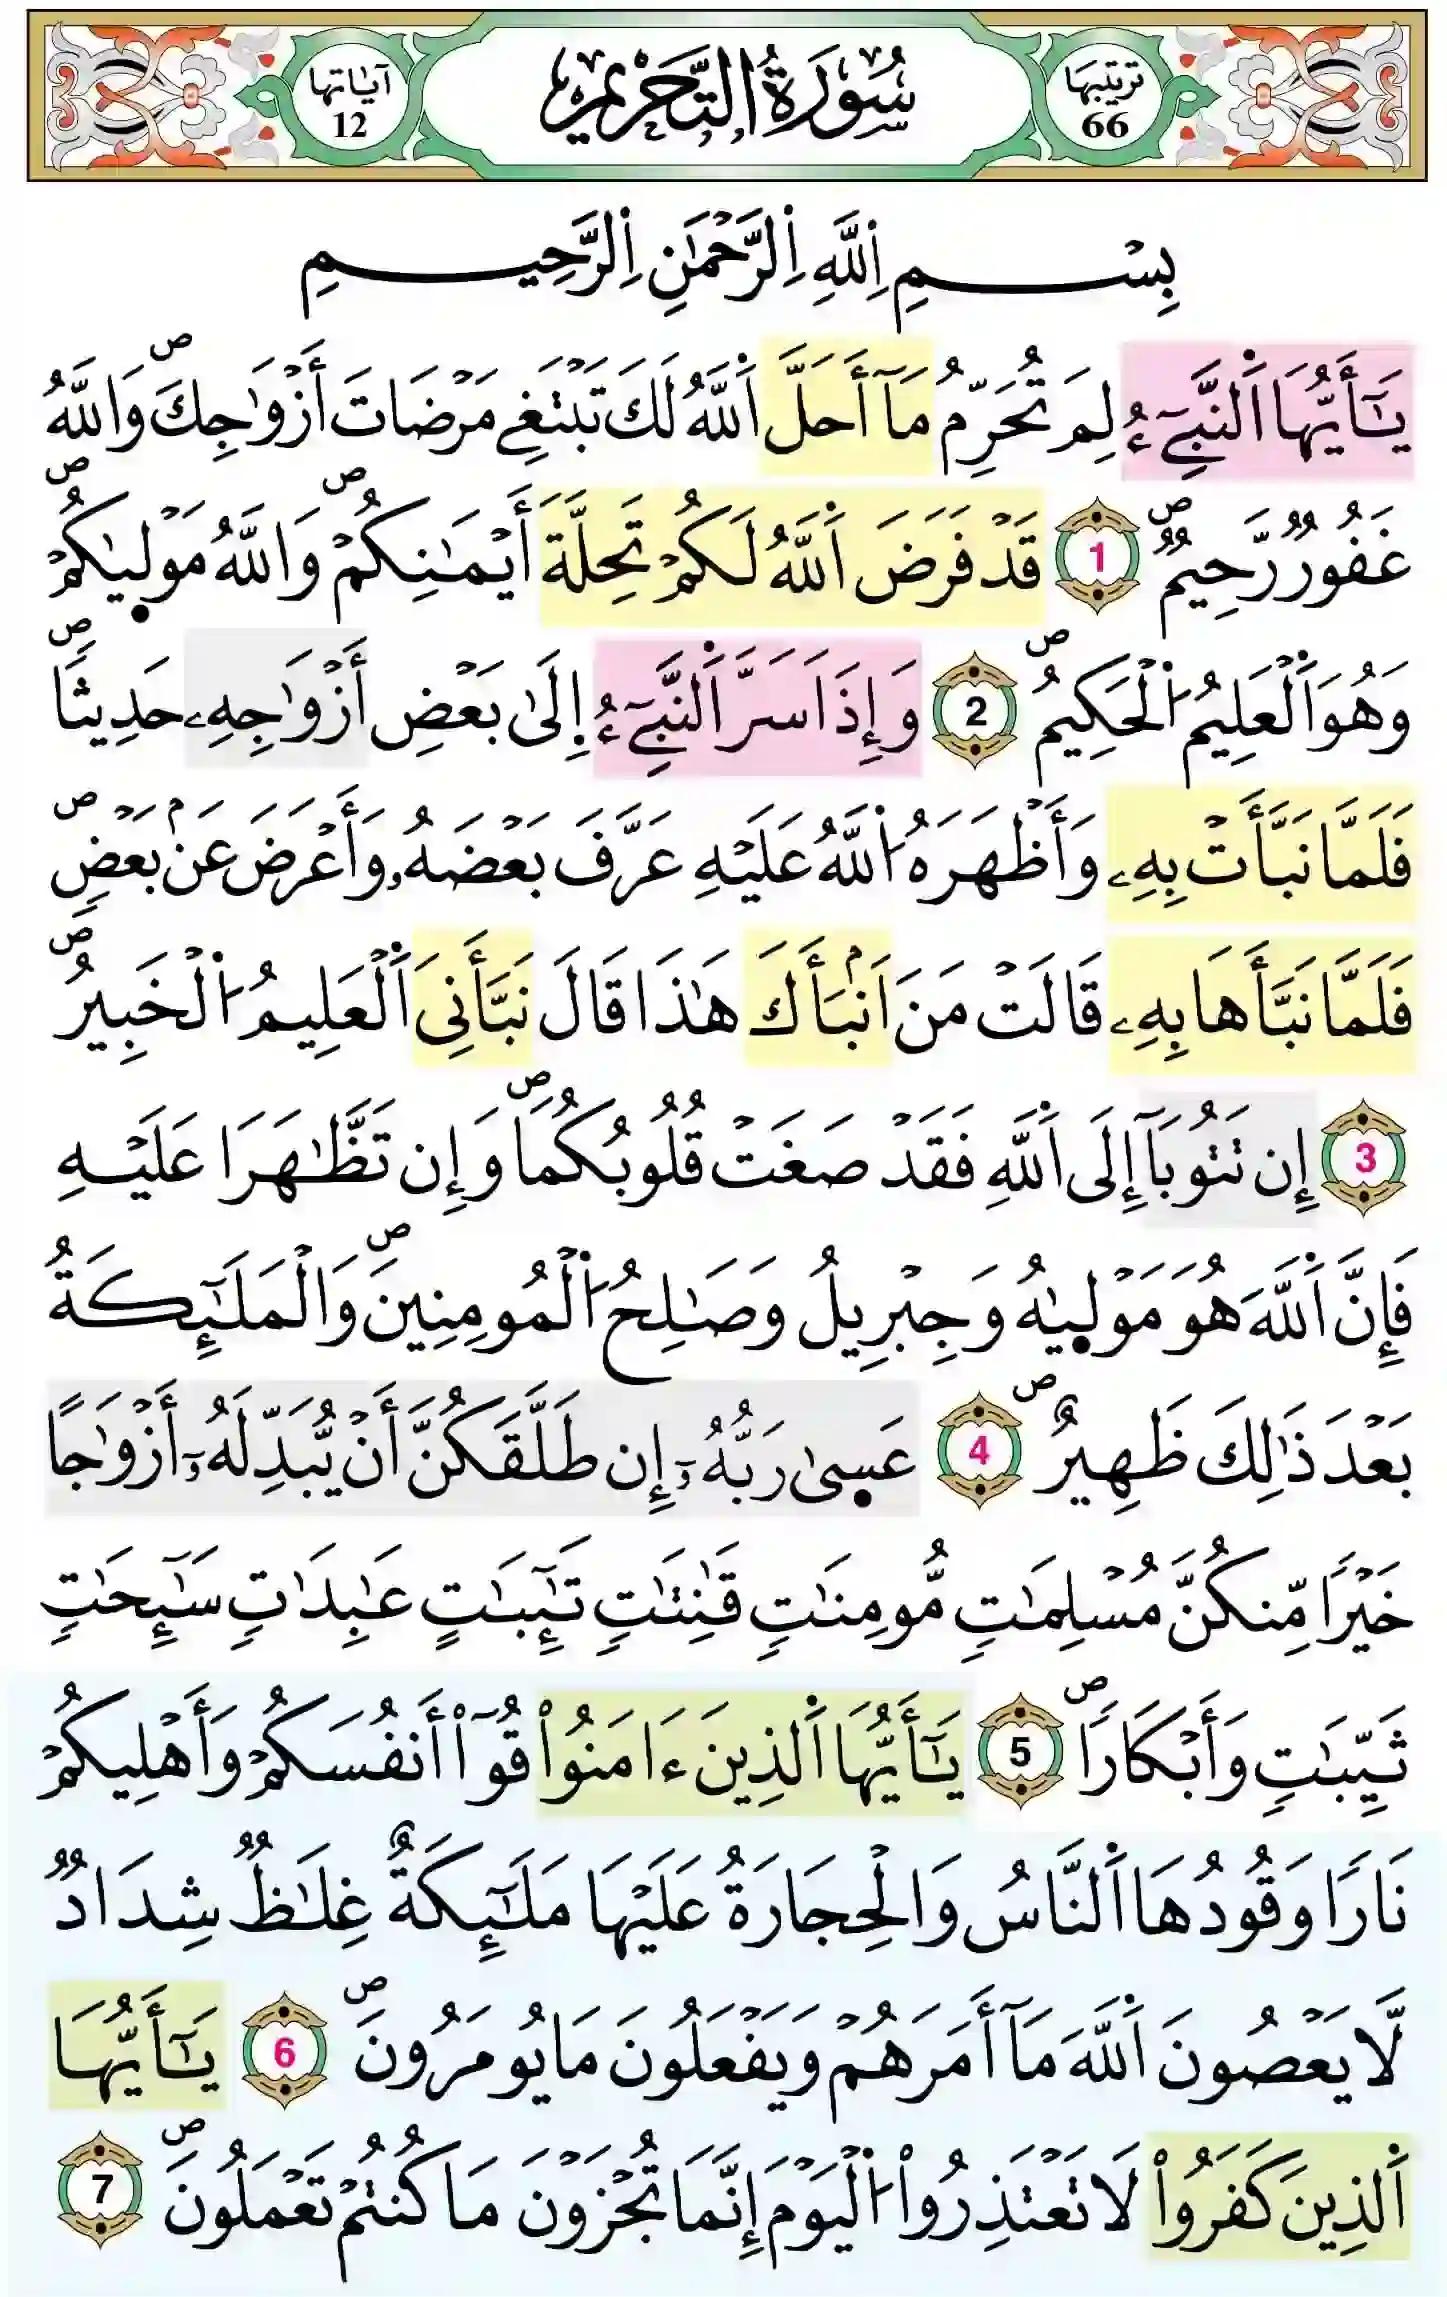 ترتيبها 66 سُورَةُ التَّحْرِيمِ آياتها 12
بِسْمِ اِللَّهِ اِلرَّحْمَٰنِ اِلرَّحِيمِ
يَٰٓأَيُّهَا اَلنَّبِےٓءُ لِمَ تُحَرِّمُ مَآ أَحَلَّ اَللَّهُ لَكَ تَبْتَغِے مَرْضَاتَ أَزْوَٰجِكَۖ وَاللَّهُ
غَفُورٌ رَّحِيمٌۖ 1 قَدْ فَرَضَ اَللَّهُ لَكُمْ تَحِلَّةَ أَيْمَٰنِكُمْۖ وَاللَّهُ مَوْل۪يٰكُمْۖ
وَهُوَ اَلْعَلِيمُ اُلْحَكِيمُۖ 2 وَإِذَ اَسَرَّ اَلنَّبِےٓءُ إِلَىٰ بَعْضِ أَزْوَٰجِهِۦ حَدِيثاًۖ
فَلَمَّا نَبَّأَتْ بِهِۦ وَأَظْهَرَهُ اُللَّهُ عَلَيْهِ عَرَّفَ بَعْضَهُۥ وَأَعْرَضَ عَنۢ بَعْضٍۖ
فَلَمَّا نَبَّأَهَا بِهِۦ قَالَتْ مَنَ اَنۢبَأَكَ هَٰذَا قَالَ نَبَّأَنِىَ اَلْعَلِيمُ اُلْخَبِيرُۖ
3 إِن تَتُوبَآ إِلَى اَللَّهِ فَقَدْ صَغَتْ قُلُوبُكُمَاۖ وَإِن تَظَّٰهَرَا عَلَيْهِ
فَإِنَّ اَللَّهَ هُوَ مَوْل۪يٰهُ وَجِبْرِيلُ وَصَٰلِحُ اُلْمُومِنِينَۖ وَالْمَلَٰٓئِكَةُ
بَعْدَ ذَٰلِكَ ظَهِيرٌۖ 4 عَس۪ىٰ رَبُّهُۥٓ إِن طَلَّقَكُنَّ أَنْ يُّبَدِّلَهُۥٓ أَزْوَٰجاً
خَيْراً مِّنكُنَّ مُسْلِمَٰتٍ مُّومِنَٰتٍ قَٰنِتَٰتٍ تَٰٓئِبَٰتٍ عَٰبِدَٰتٍ سَٰٓئِحَٰتٍ
ثَيِّبَٰتٍ وَأَبْكَاراًۖ 5 يَٰٓأَيُّهَا اَلذِينَ ءَامَنُواْ قُوٓاْ أَنفُسَكُمْ وَأَهْلِيكُمْ
نَاراً وَقُودُهَا اَلنَّاسُ وَالْحِجَارَةُ عَلَيْهَا مَلَٰٓئِكَةٌ غِلَٰظٌ شِدَادٌ
لَّا يَعْصُونَ اَللَّهَ مَآ أَمَرَهُمْ وَيَفْعَلُونَ مَا يُومَرُونَۖ 6 يَٰٓأَيُّهَا
اَلذِينَ كَفَرُواْ لَا تَعْتَذِرُواْ اُلْيَوْمَ إِنَّمَا تُجْزَوْنَ مَا كُنتُمْ تَعْمَلُونَۖ 7